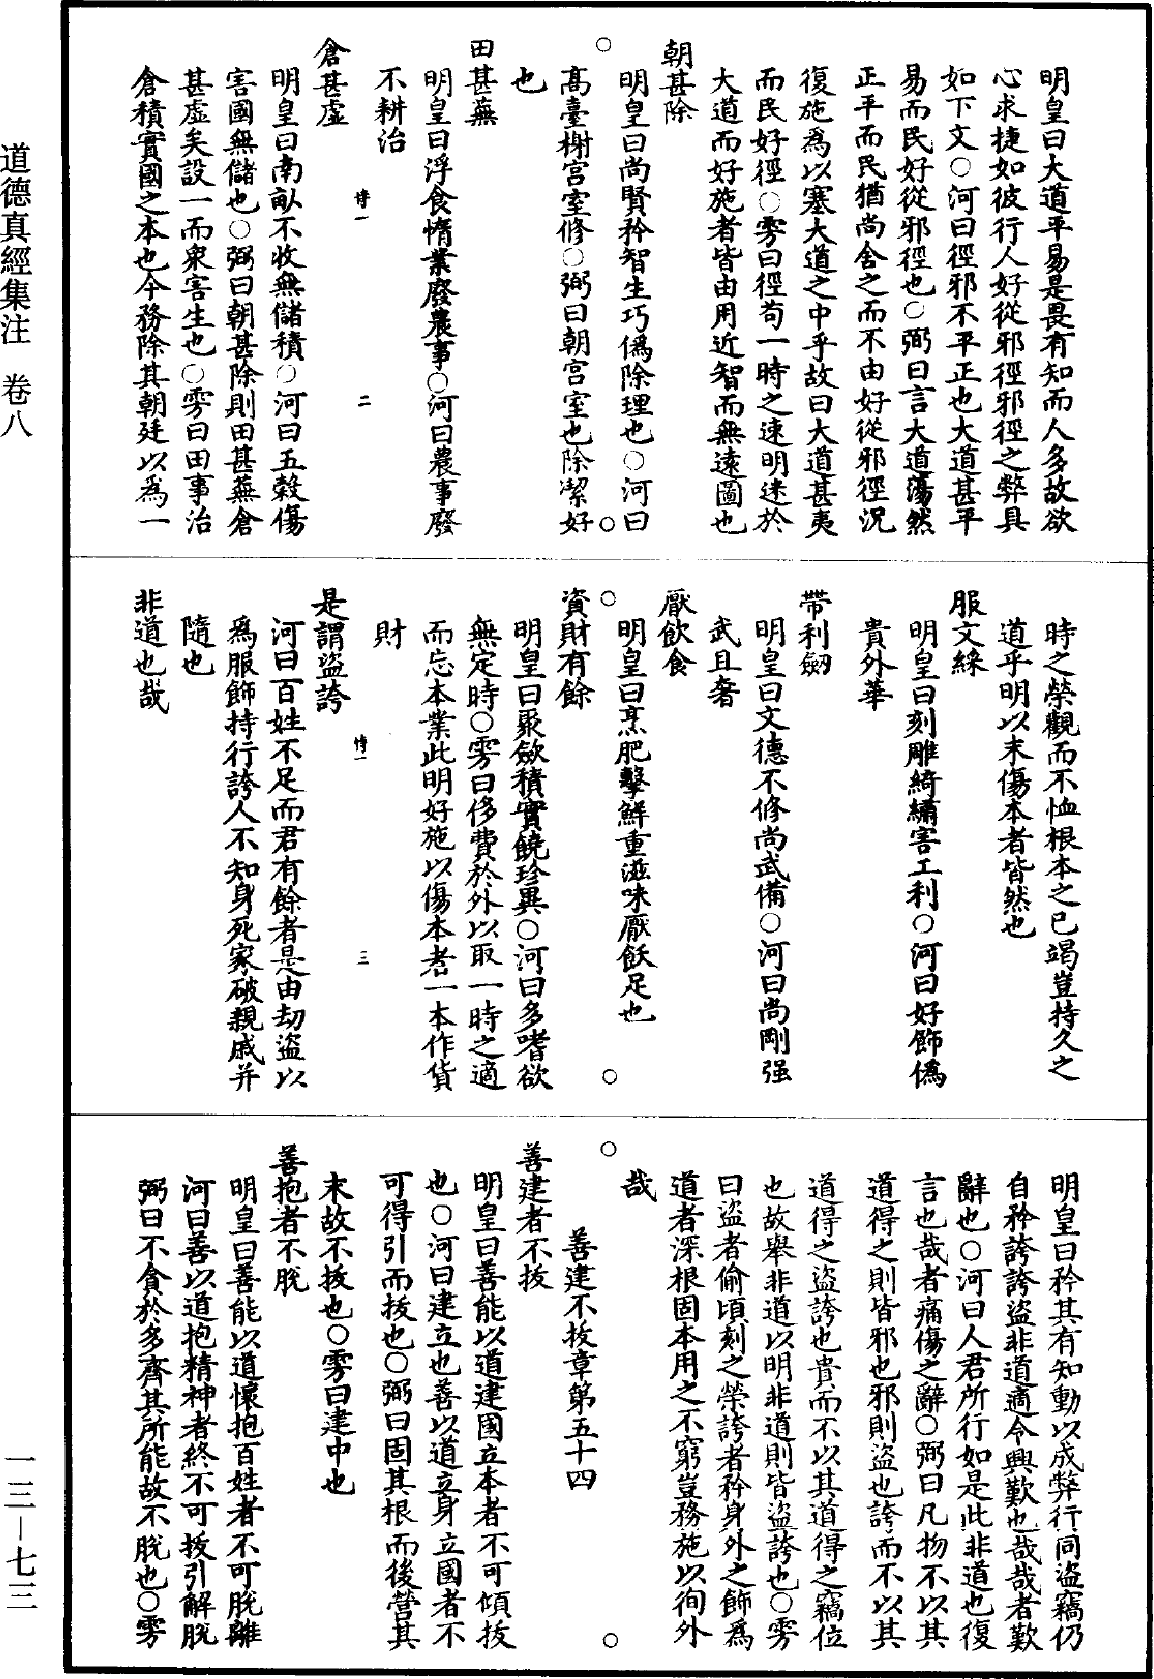 道德真經集注　卷八
明皇曰大道平易是畏有知而人多故欲
心求捷如彼行人好從邪徑邪徑之弊具
如下文○河曰徑邪不平正也大道甚平
易而民好從邪徑也○弼曰言大道蕩然
正平而民猶尚舍之而不由好從邪徑況
復施爲以塞大道之中乎故曰大道甚夷
而民好徑○雱曰徑苟一時之速明迷於
大道而好施者皆由用近智而無遠圖也
朝甚除
明皇曰尚賢矜智生巧僞除理也○河曰
高臺榭宮室修○弼曰朝宮室也除潔好
也
田甚蕪
明皇曰浮食惰業廢農事○河曰農事廢
不耕治
倉甚虛
明皇曰南畝不收無儲積○河曰五穀傷
害國無儲也○弼曰朝甚除則田甚蕪倉
甚虛矣設一而衆害生也○雱曰田事治
倉積實國之本也今務除其朝廷以爲一
時之榮觀而不恤根本之已竭豈持久之
道乎明以末傷本者皆然也
服文綵
明皇曰刻雕綺繡害工利○河曰好飾僞
貴外華
帶利劒
明皇曰文德不修尚武備○河曰尚剛强
武且奢
厭飲食
明皇曰烹肥擊鮮重滋味厭飫足也
資財有餘
明皇曰聚斂積實饒珍異○河曰多嗜欲
無定時○雱曰侈費於外以取一時之適
而忘本業此明好施以傷本者一本作貨
財
是謂盜誇
河曰百姓不足而君有餘者是由劫盜以
爲服飾持行誇人不知身死家破親戚并
隨也
非道也哉
明皇曰矜其有知動以成弊行同盜竊仍
自矜誇誇盜非道適令興歎也哉哉者歎
辭也○河曰人君所行如是此非道也復
言也哉者痛傷之辭○弼曰凡物不以其
道得之則皆邪也邪則盜也誇而不以其
道得之盜誇也貴而不以其道得之竊位
也故舉非道以明非道則皆盜誇也○雱
曰盜者偷頃刻之榮誇者矜身外之飾爲
道者深根固本用之不窮豈務施以徇外
哉
善建不拔章第五十四
善建者不拔
明皇曰善能以道建國立本者不可傾拔
也○河曰建立也善以道立身立國者不
可得引而拔也○弼曰固其根而後營其
末故不拔也○雱曰建中也
善抱者不脫
明皇曰善能以道懷抱百姓者不可脫離
河曰善以道抱精神者終不可拔引解脫
弼曰不貪於多齊其所能故不脫也○雱
一三－七三